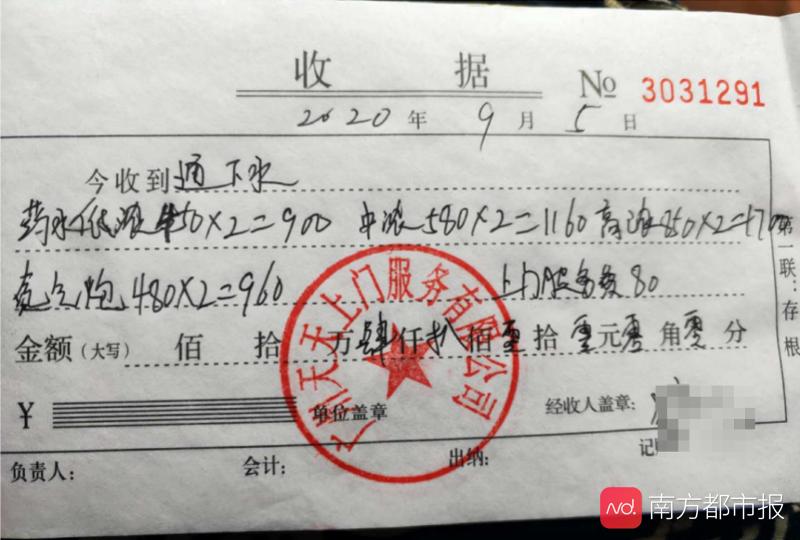 收据 № 3031291
2020 年 9 月 5 日
今收到 通下水
药水低浓 450×2=900 中浓 580×2=1160 高浓 850×2=1700
氮气炮 480×2=960 上门服务费 80
金额(大写) 佰 拾 万 肆 仟 捌 佰 零 拾 零 元 零 角 零 分
¥ 单位盖章 经收人盖章:
负责人: 会计: 出纳: 记
第一联:存根
广州天天上门服务有限公司
nd. 南方都市报